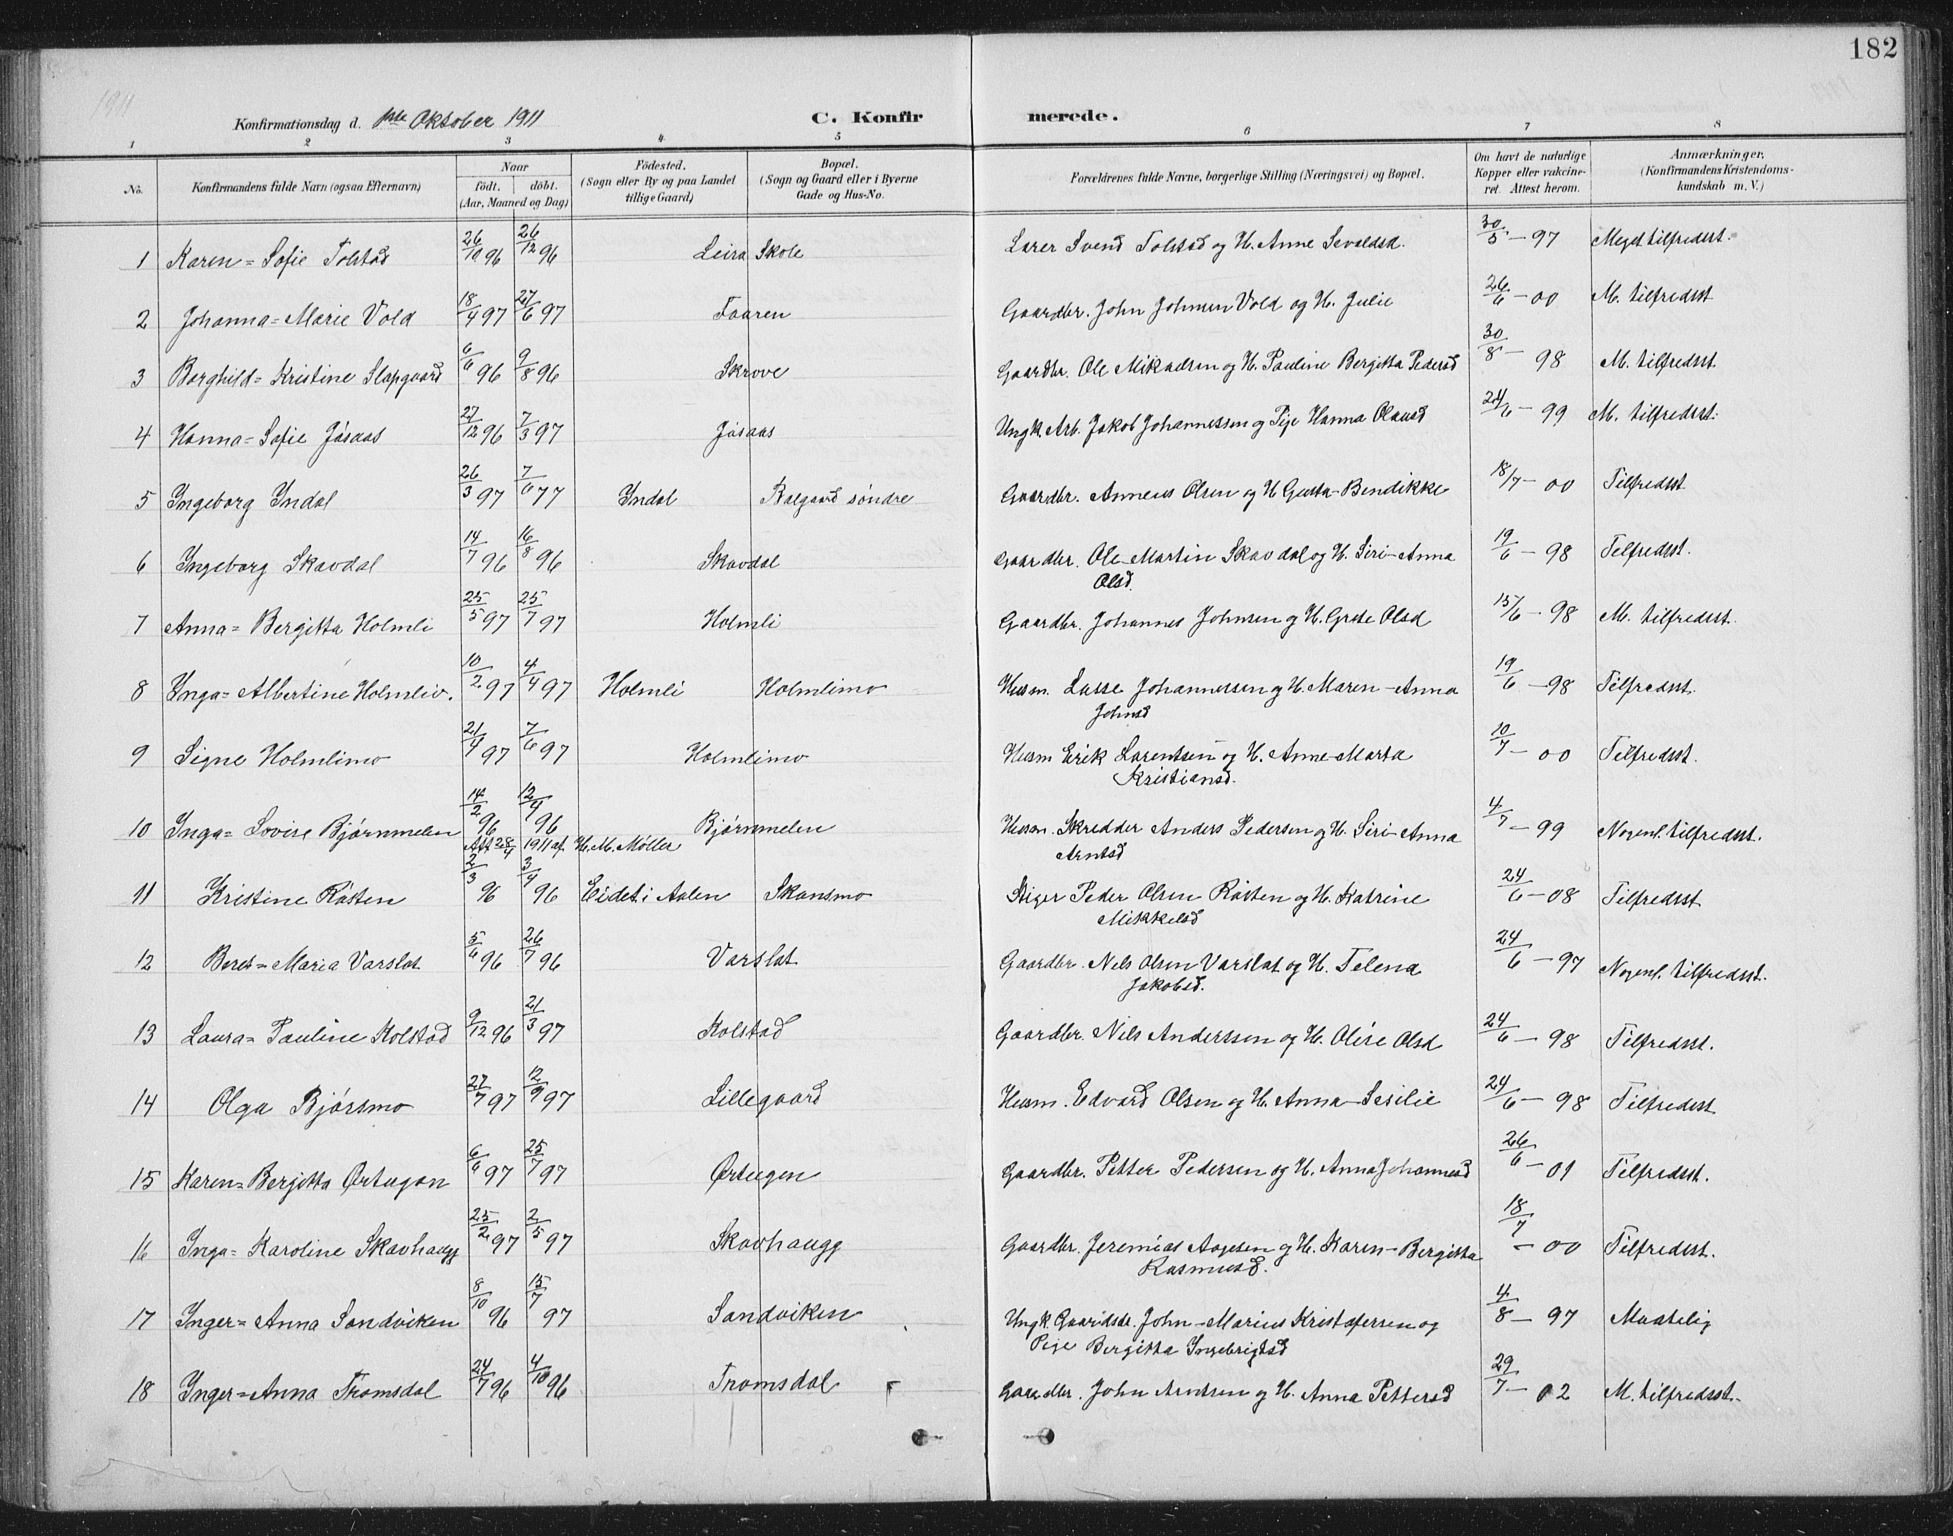 182
1911
Konfirmationsdag d. 1ste Oktober 1911 C. Konfirmerede.
1 2 3 4 5 6 7 8
No. Konfirmandens fulde Navn (ogsaa Efternavn) Naar født. døbt. (Aar, Maaned og Dag) Fødested. (Sogn eller By og paa Landet tillige Gaard) Bopæl. (Sogn og Gaard eller i Byerne Gade og Hus-No. Forældrenes fulde Navne, borgerlige Stilling (Næringsvei) og Bopæl. Om havt de naturlige Kopper eller vakcineret. Attest herom. Anmærkninger, (Konfirmandens Kristendomskundskab m. V.)
1 Karen=Sofie Tolstad 26/10 96 26/12 96 Leira Skole Lærer Svend Tolstad og H. Anne Sevaldsd. 30/5 – 97 Meget tilfredsst.
2 Johanna=Marie Vold 18/4 97 27/6 97 Faaren Gaardbr. John Johnsen Vold og H. Julie 26/6 – 00 M. tilfredsst
3 Borghild=Kristine Slapgaard 6/6 96 9/8 96 Skrove Gaardbr. Ole Mikaelsen og H. Pauline Bergitta Pedersd 30/8 – 98 M. tilfredsst.
4 Hanna=Sofie Jøsaas 27/12 96 7/3 97 Jøsaas Ungk. Arb. Jakob Johannessen og Pige Hanna Olausd 24/6 – 99 M. tilfredsst.
5 Ingeborg Indal 26/3 97 7/6 77 Indal Balgaard søndre Gaardbr. Anneus Olsen og H Gusta-Bendikke 18/7 – 00 Tilfredsst
6 Ingeborg Skavdal 14/7 96 16/8 96 Skavdal Gaardbr. Ole-Martin Skavdal og H. Siri-Anna
Olsd. 19/6 – 98 Tilfredsst.
7 Anna=Bergitta Holmli 25/5 97 25/7 97 Holmli Gaardbr. Johannes Johnsen og H. Grete Olsd 15/6 – 98 M. tilfredsst.
8 Inga=Albertine Holmliv. 10/2 97 4/4 97 Holmli Holmlimo Husm. Lasse Johannessen og H. Maren-Anna
Johnsd 19/6 – 98 Tilfredsst.
9 Signe Holmlimo 21/4 97 7/6 97 Holmlimo Husm Erik Larentsen og H. Anne-Marta
Kristiansd. 10/7 – 00 Tilfredsst.
10 Inga=Lovise Bjørnmelen 14/2 96 12/4 96 Bjørnmelen Husm. Skredder Anders Pedersen og H. Siri-Anna
Arntsd 4/7 – 99 Nogenl. tilfredsst.
Att 28/4 1911 af H. M. Møller
11 Kristine Røsten 2/3 96 3/4 96 Eidet i Aalen Skansmo Stiger Peder Olsen Røsten og H. Katrine
Mikkelsd 24/6 – 08 Tilfredsst
12 Beret=Maria Varslot 5/6 96 26/7 96 Varslot Gaardbr. Nils Olsen Varslot og H. Telena
Jakobsd. 24/6 – 97 Nogenl. tilfredsst.
13 Laura=Pauline Kolstad 9/12 96 21/3 97 Kolstad Gaardbr. Nils Anderssen og H. Olise Olsd 24/6 – 98 Tilfredsst.
14 Olga Bjørsmo 27/7 97 12/9 97 Lillegaard Husm. Edvard Olsen og H. Anna-Sesilie 24/6 – 98 Tilfredsst
15 Karen=Bergitta Ørtugen 6/6 97 25/7 97 Ørtugen Gaardbr. Petter Pedersen og H. Anna Johannesd 26/6 – 01 Tilfredsst.
16 Inga=Karoline Skavhaugg 25/2 97 2/5 97 Skavhaugg Gaardbr. Jeremias Aagesen og H. Karen-Bergitta
Rasmusd. 18/7 – 00 Tilfredsst.
17 Inger=Anna Sandviken 8/10 96 15/7 97 Sandviken Ungk. Gaardsdr. John-Marius Kristofersen og
Pige Bergitta Ingebrigtsd 4/8 – 97 Maatelig
18 Inger=Anna Tromsdal 24/7 96 4/10 96 Tromsdal Gaardbr. John Arntsen og H. Anna Pettersd 29/7 – 02 M. tilfredsst.